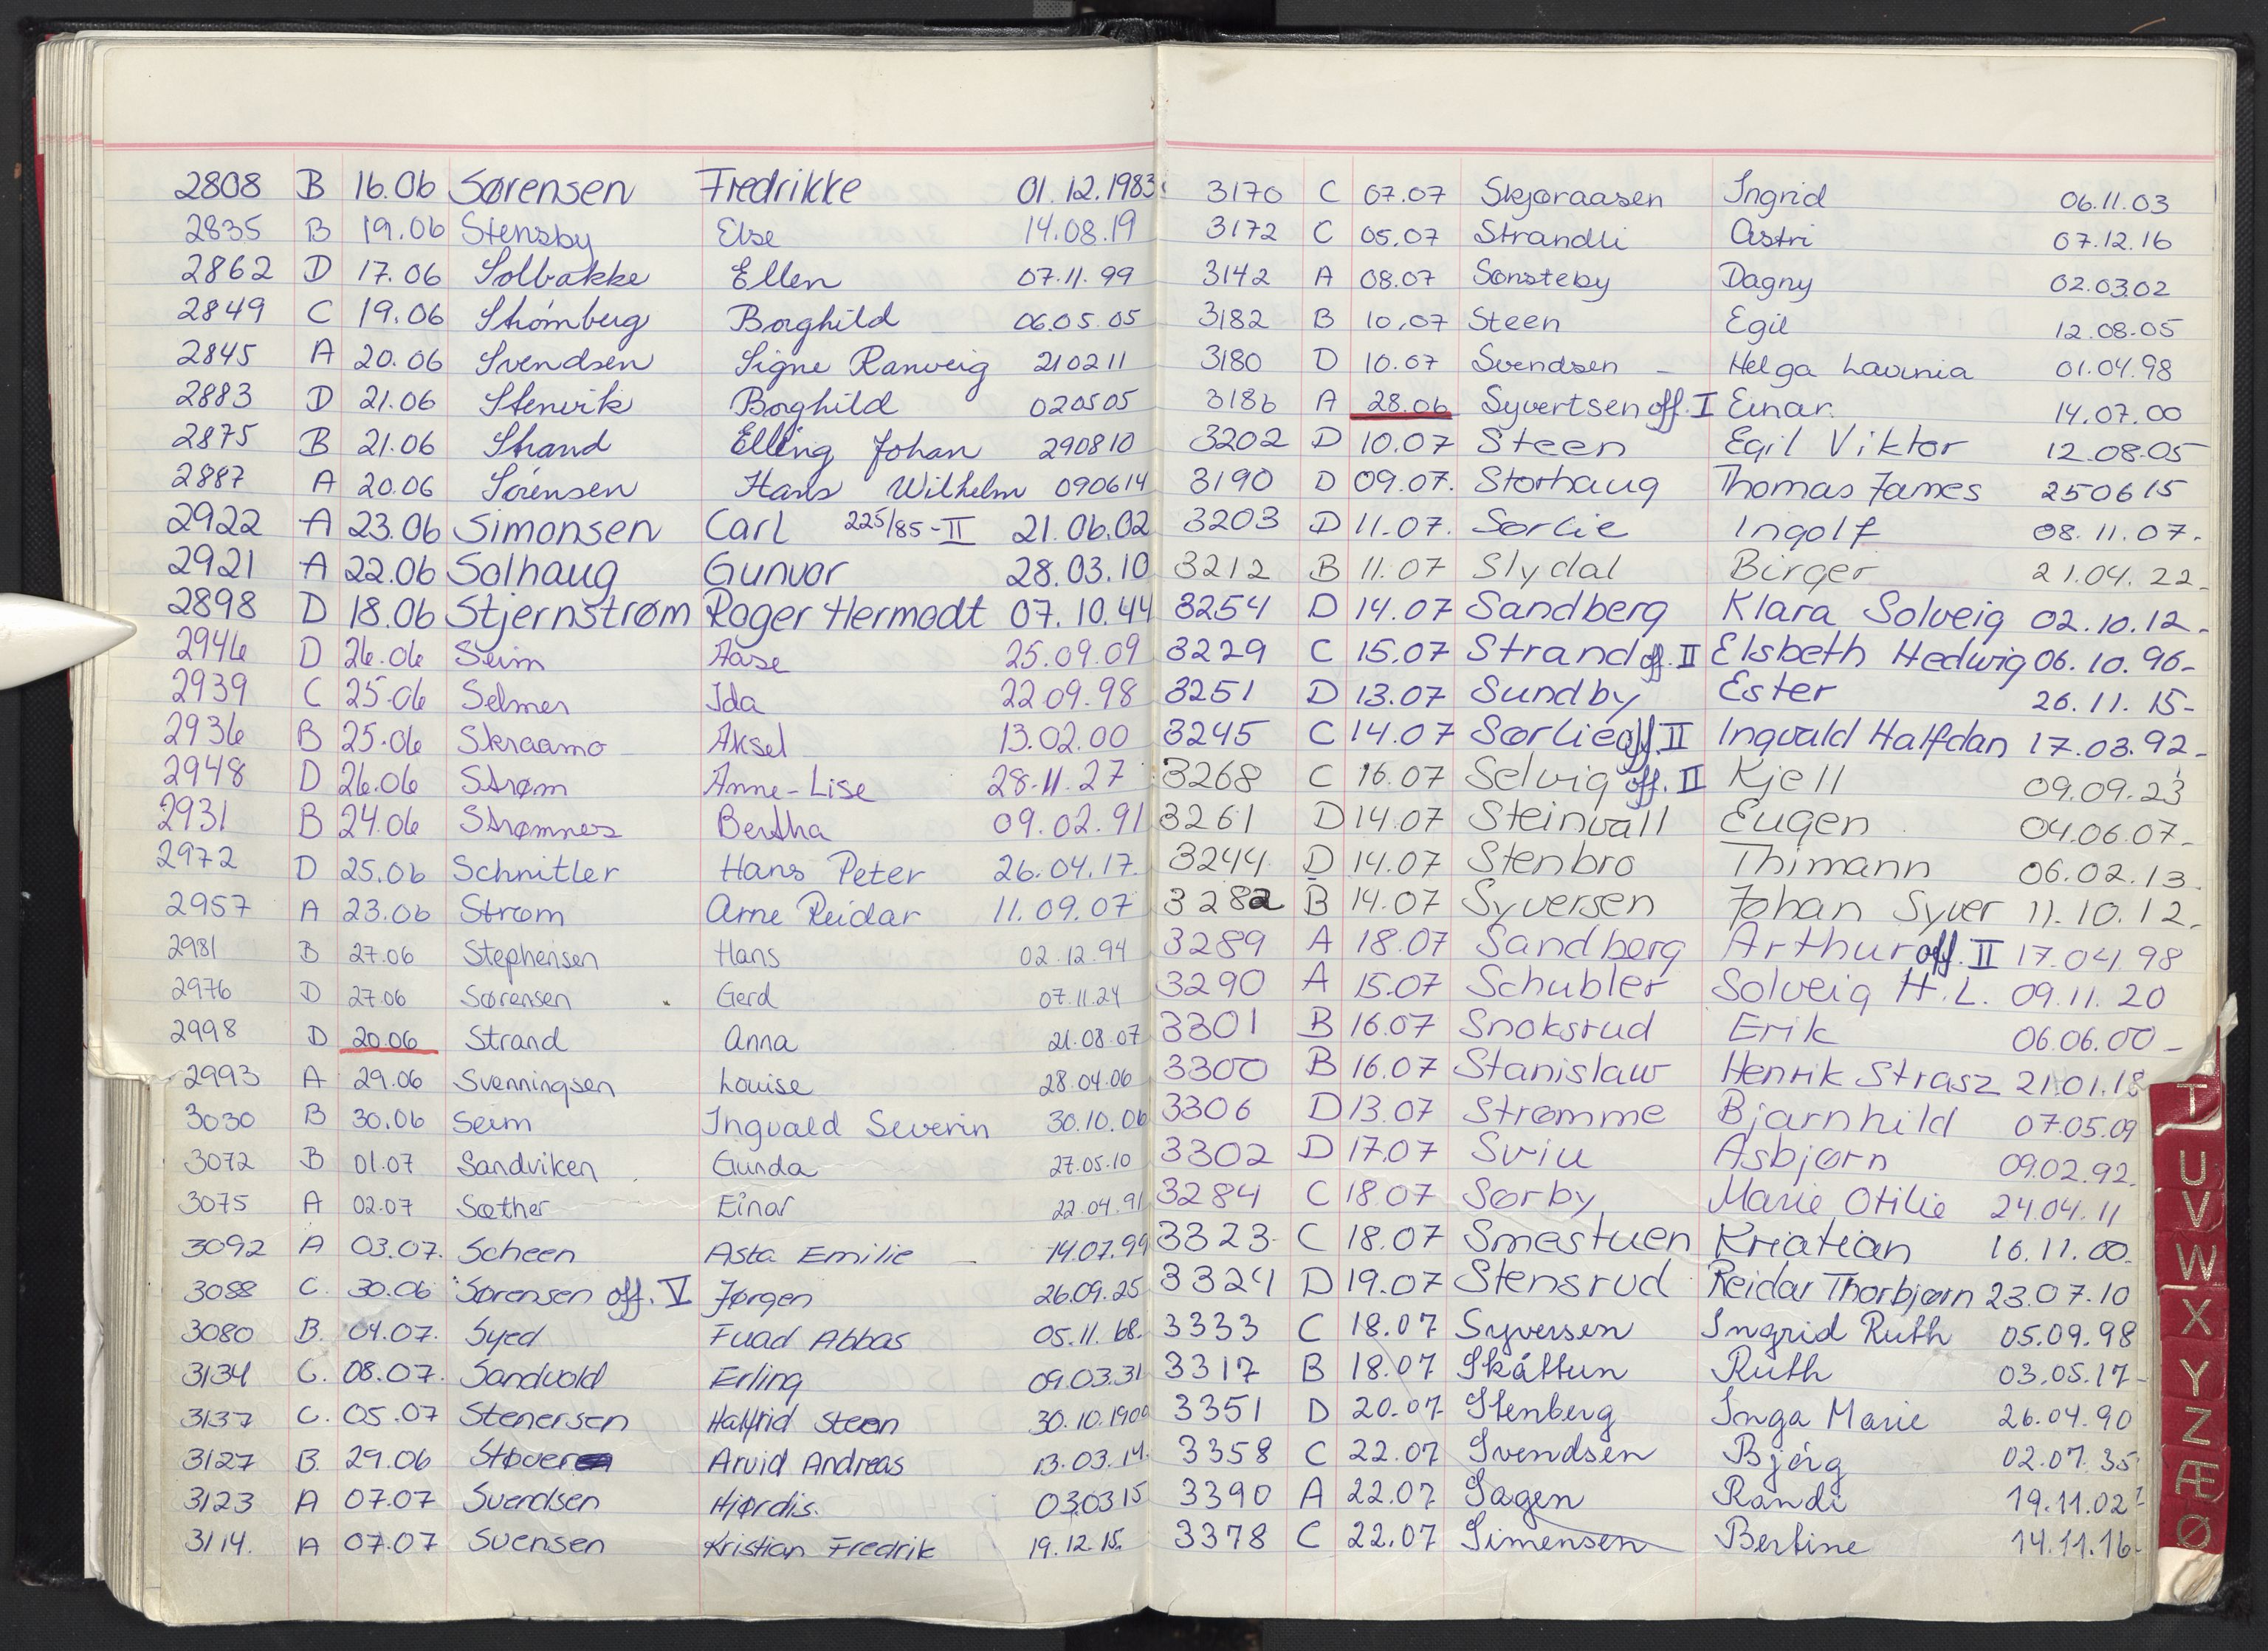 2808 B 16.06 Sørensen Fredrikke 01.12.1983
2835 B 19.06 Stensby Else 14.08.19
2862 D 17.06 Solbakke Ellen 07.11.99
2849 C 19.06 Strømberg Borghild 06.05.05
2845 A 20.06 Svendsen Signe Ranveig 210211
2883 D 21.06 Stenvik Borghild 020505
2875 B 21.06 Strand Elling Johan 290810
2887 A 20.06 Sørensen Hans Wilhelm 090614
2922 A 23.06 Simonsen Carl 225/85-II 21.06.02
2921 A 22.06 Solhaug Gunvor 28.03.10
2898 D 18.06 Stjernstrøm Roger Hermodt 07.10.44
2946 D 26.06 Seim Aase 25.09.09
2939 C 25.06 Selmer Ida 22.09.98
2936 B 25.06 Skraamo Aksel 13.02.00
2948 D 26.06 Strøm Anne-Lise 28.11.27
2931 B 24.06 Strømnes Bertha 09.02.91
2972 D 25.06 Schnitler Hans Peter 26.04.17
2957 A 23.06 Strøm Arne Reidar 11.09.07
2981 B 27.06 Stephensen Hans 02.12.94
2976 D 27.06 Sørensen Gerd 07.11.24
2998 D 20.06 Strand Anna 21.08.07
2993 A 29.06 Svenningsen Louise 28.04.06
3030 B 30.06 Seim Ingvald Severin 30.10.06
3072 B 01.07 Sandviken Gunda 27.05.10
3075 A 02.07 Sæther Einar 22.04.91
3092 A 03.07. Scheen Asta Emilie 14.07.99
3088 C. 30.06 Sørensen off. V Jørgen 26.09.25
3080 B. 04.07. Syed Fuad Abbas 05.11.68.
3134 C. 08.07. Sandvold Erling 09.03.31
3137 C. 05.07 Stenersen Halfrid Steen 30.10.1900
3127 B. 29.06 Støver Arvid Andreas 13.03.14.
3123 A 07.07 Svendsen Hjørdis. 030315
3114. A 07.07 Svensen Kristian Fredrik 19.12.15.
3170 C 07.07 Skjøraasen Ingrid 06.11.03
3172 C 05.07 Strandli Astri 07.12.16
3142 A 08.07 Sønsteby Dagny 02.03.02
3182 B 10.07 Steen Egil 12.08.05
3180 D 10.07 Svendsen - Helga Lavinia 01.04.98
3186 A 28.06 Syvertsen off. I Einar. 14.07.00
3202 D 10.07 Steen Egil Viktor 12.08.05
3190 D 09.07. Storhaug Thomas James 250615
3203 D 11.07. Sørlie Ingolf 08.11.07.
3212 B 11.07 Slydal Birger 21.04.22
3254 D 14.07 Sandberg Klara Solveig 02.10.12
3229 C 15.07 Strand off. II Elsbeth Hedwig 06.10.96
3251 D 13.07 Sundby Ester 26.11.15-
3245 C 14.07 Sørlie off. II Ingvald Halfdan 17.03.92
3268 C 16.07 Selvig off. II Kjell 09.09.23
3261 D 14.07 Steinvall Eugen 04.06.07
3244 D 14.07 Stenbro Thimann 06.02.13
3282 B 14.07 Syversen Johan Syver 11.10.12
3289 A 18.07 Sandberg Arthur off. II 17.04.98
3290 A 15.07 Schubler Solveig H.L. 09.11.20
3301 B 16.07 Snoksrud Erik 06.06.00
3300 B 16.07 Stanislaw Henrik Strasz 21.01.18
3306 D 13.07 Strømme Bjarnhild 07.05.09
3302 D 17.07 Sviu Asbjørn 09.02.92.
3284 C 18.07 Sørby Marie Otilie 24.04.11
3323 C 18.07 Smestuen Kriatian 16.11.00.
3324 D 19.07 Stensrud Reidar Thorbjørn 23.07.10
3333 C 18.07 Syversen Ingrid Ruth 05.09.98
3317 B 18.07 Skåttun Ruth 03.05.17
3351 D 20.07 Stenberg Inga Marie 26.04.90
3358 C 22.07 Svendsen Bjørg 02.07.35
3390 A 22.07 Sagen Randi 19.11.02
3378 C 22.07 Simensen Bertine 14.11.16
T
U
V
W
X
Y
Z
Æ
Ø